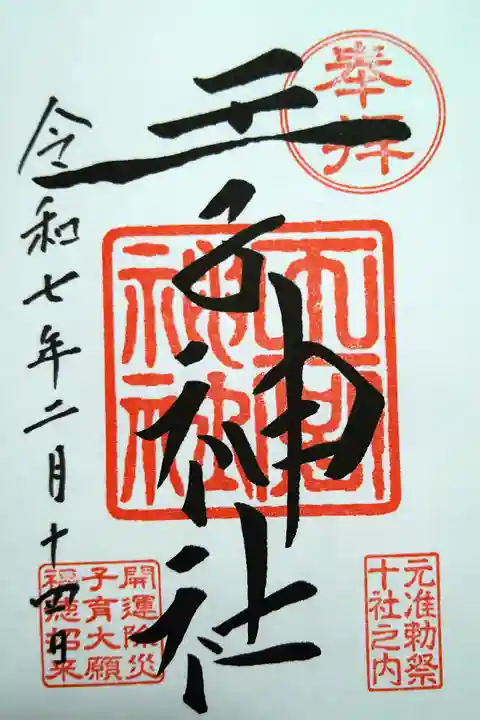 奉拝
王子神社
王子神社
令和七年二月十四日
元准勅祭
十社之内
開運除災
子育大願
福徳招来